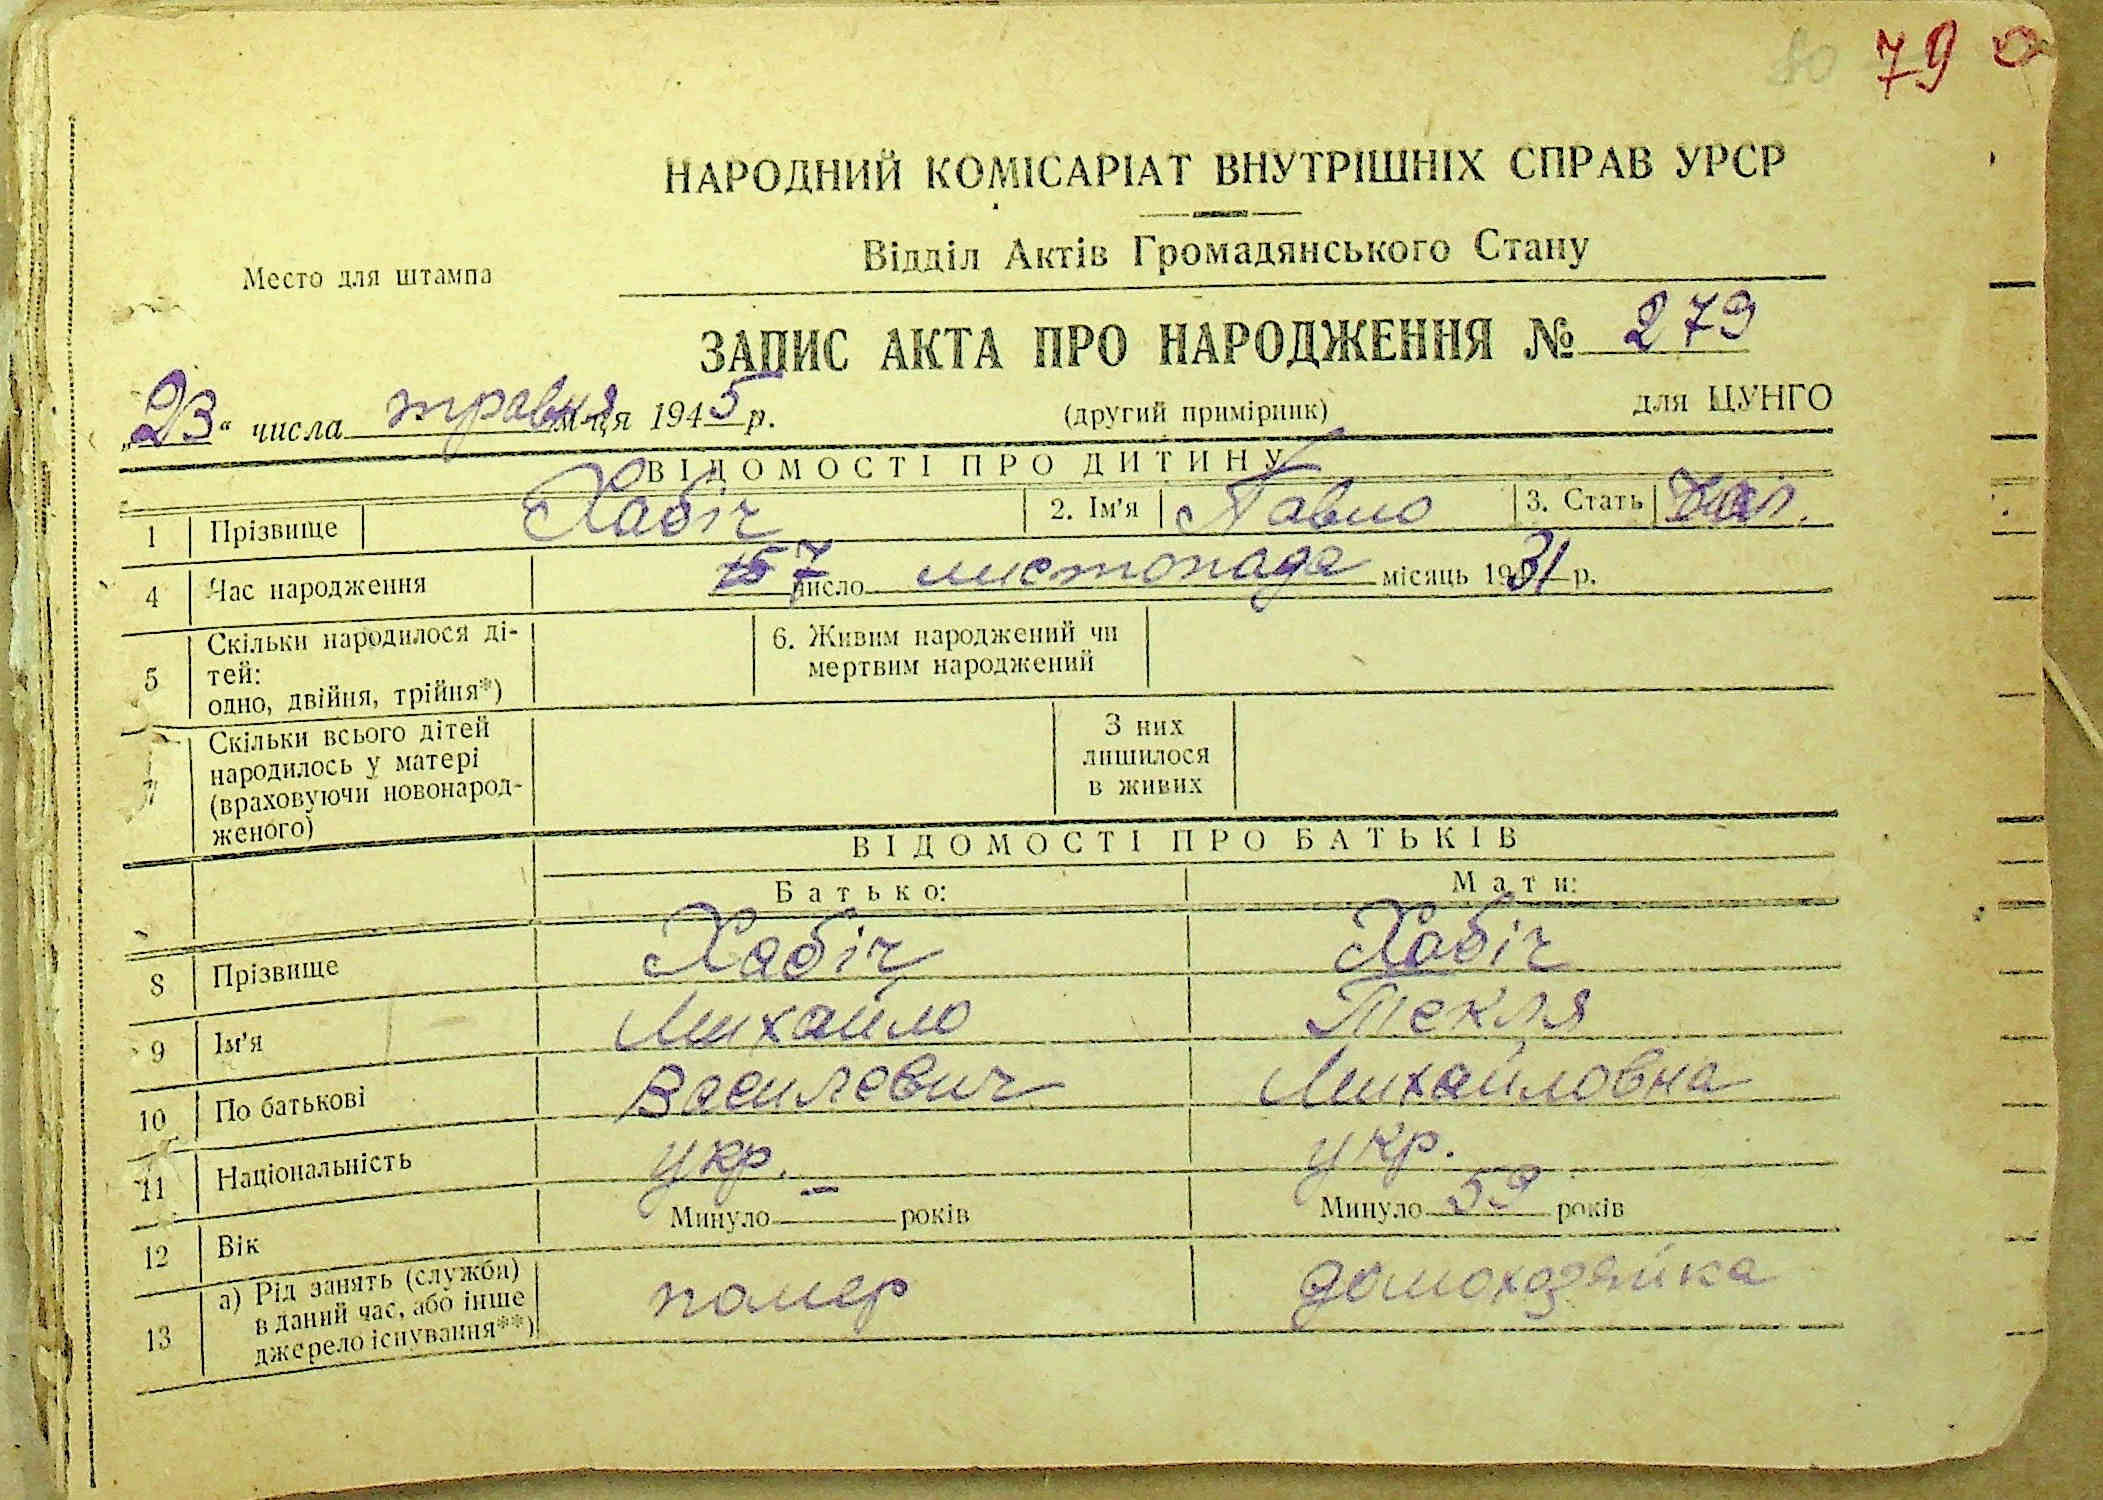 80 79
НАРОДНИЙ КОМІСАРІАТ ВНУТРІШНІХ СПРАВ УРСР
Відділ Актів Громадянського Стану
Место для штампа
ЗАПИС АКТА ПРО НАРОДЖЕННЯ № 279
„23“ числа травня м-ця 1945 р.
(другий примірник)
для ЦУНГО
ВІДОМОСТІ ПРО ДИТИНУ
1 Прізвище Хабіч 2. Ім'я Павло 3. Стать
4 Час народження 7 число листопада місяць 1931 р.
5 Скільки народилося ді-
тей:
одно, двійня, трійня*)
6. Живим народжений чи
мертвим народжений
7 Скільки всього дітей
народилось у матері
(враховуючи новонарод-
женого)
З них
лишилося
в живих
ВІДОМОСТІ ПРО БАТЬКІВ
Батько: Мати:
8 Прізвище Хабіч Хабіч
9 Ім'я Михайло Текля
10 По батькові Василевич Михайловна
11 Національність укр. укр.
12 Вік Минуло — років Минуло 59 років
13 а) Рід занять (служби)
в даний час, або інше
джерело існування**)
помер домохазяйка